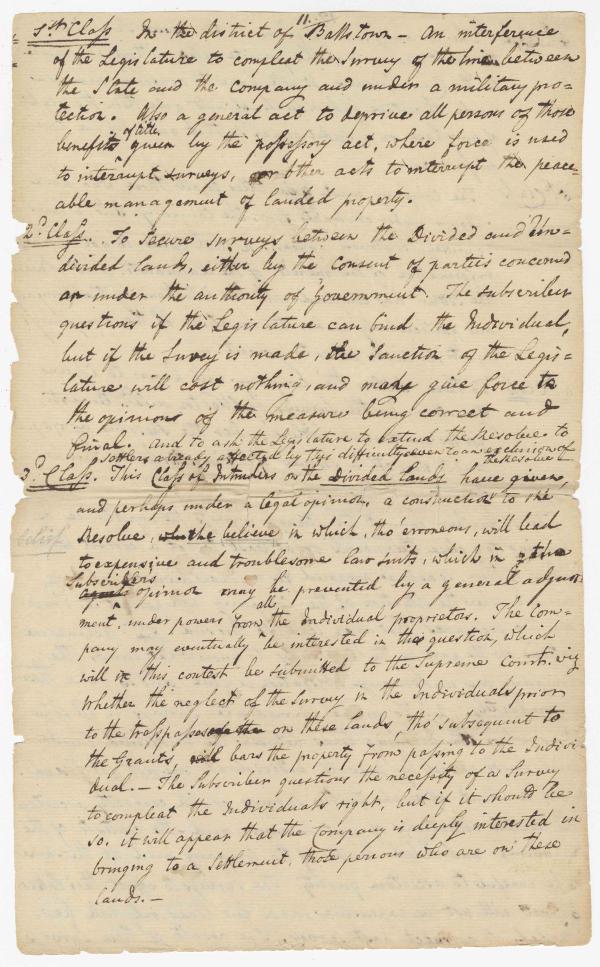 11.
1.st Class In the district of Ballstown – An interference
of the Legislature to compleat the Survey of the line between
the State and the Company and under a military pro=
tection. Also a general act to deprive all persons of those
benefits of title given by the possessory act, where force is used
to interrupt surveys, or other acts to interrupt the peace=
able management of landed property.
2.d Class. To Secure surveys between the Divided and Un=
divided lands, either by the Consent of parties concerned
or under the authority of Government. The subscriber
questions if the Legislature can bind the Individual,
but if the Survey is made, the Sanction of the Legis=
lature will cost nothing, and may give force to
the opinions of the Measure being correct and
final. and to ask the Legislature to extend the Resolve to
settlers already affected by this difficulty even to an exclusion of
the Resolve
3.d Class. This Class of Intruders on the Divided lands have given,
and perhaps under a legal opinion, a construction to the
Resolve, the believe in which, tho' erroneous, will lead
to expensive and troublesome law suits, which in the
Subscribers
opinion may be prevented by a general adjust
ment, under powers from all the Individual proprietors. The Com=
pany may eventually be interested in the question, which
will in this contest be submitted to the Supreme Court. viz
Whether the neglect of the Survey in the Individuals prior
to the trasspasses on these lands, tho' subsequent to
the Grants, bars the property from passing to the Indivi
dual. — The Subscriber questions the necessity of a Survey
to compleat the Individuals right, but if it should be
so. it will appear that the Company is deeply interested in
bringing to a Settlement, those persons who are on these
lands. —